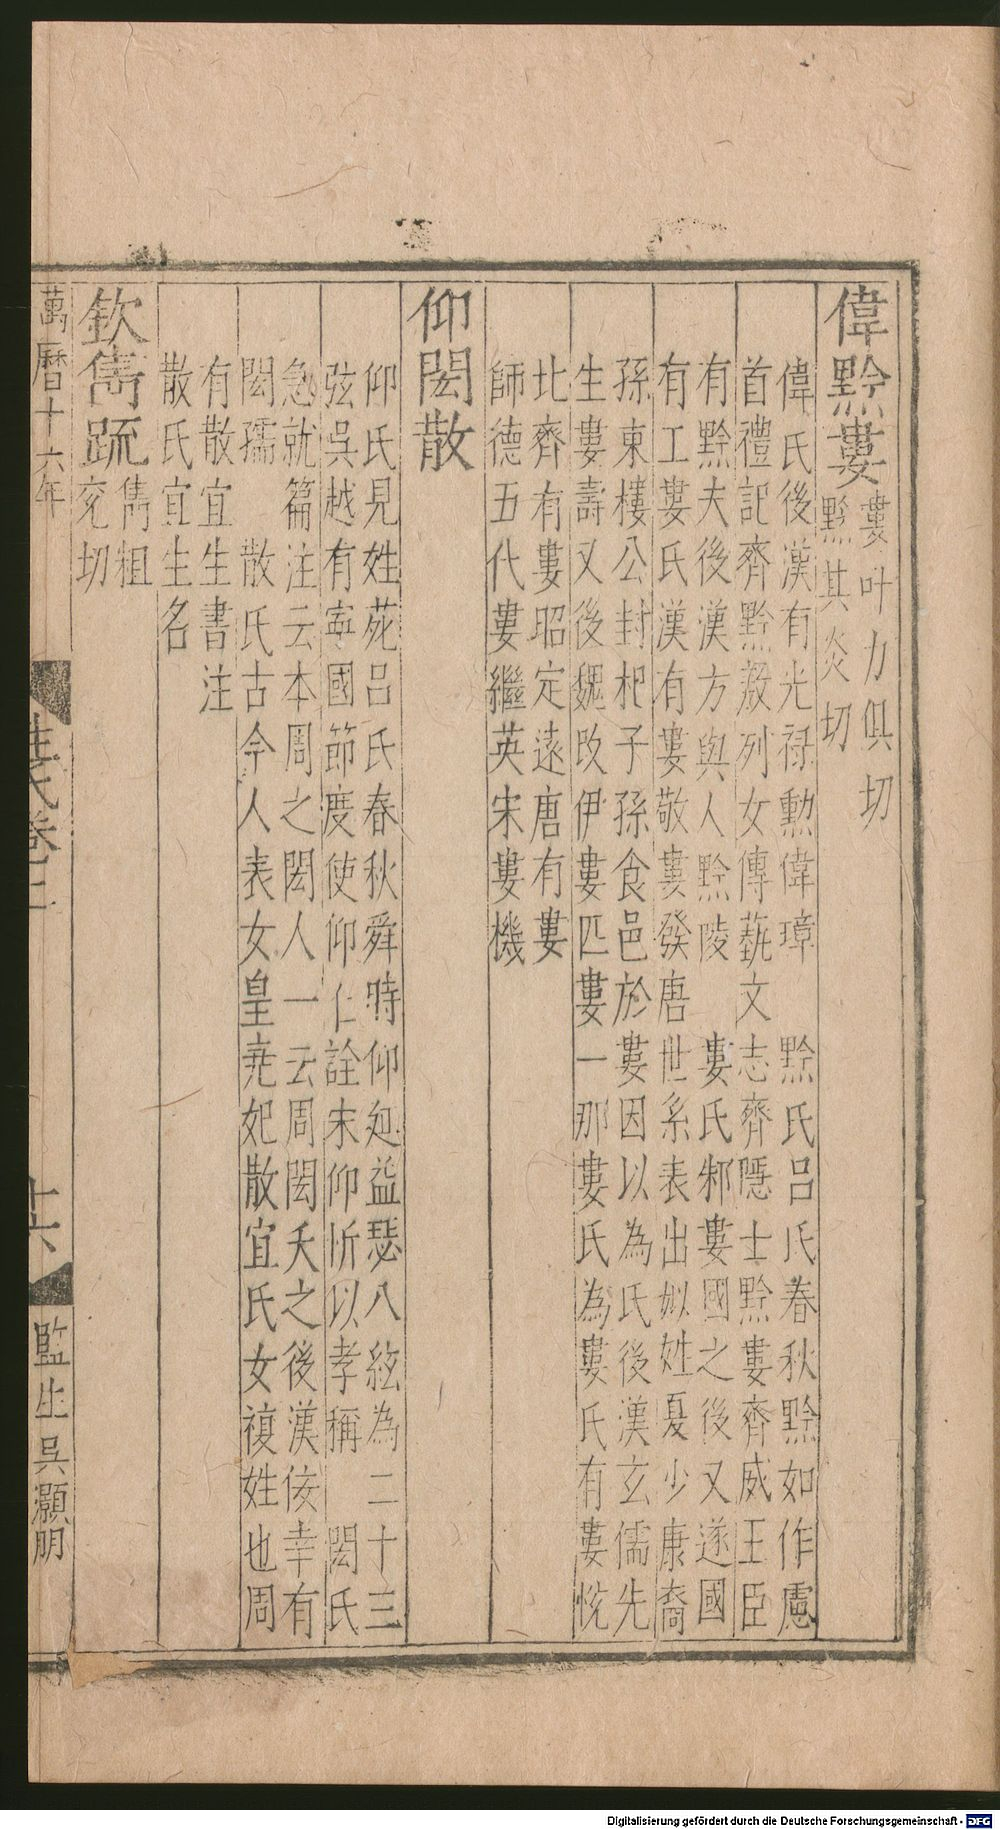 偉黔婁
婁叶力俱切
黔其炎切
偉氏後漢有光禄勲偉璋　黔氏吕氏春秋黔如作慮
首禮記齊黔敖列女傳蓺文志齊隱士黔婁齊威王臣
有黔夫後漢方與人黔陵　婁氏邾婁國之後又遂國
有工婁氏漢有婁敬婁發唐世系表出姒姓夏少康裔
孫東樓公封杞子孫食邑於婁因以為氏後漢玄儒先
生婁壽又後魏改伊婁匹婁一那婁氏為婁氏有婁恱
北齊有婁昭定遠唐有婁
師德五代婁繼英宋婁機
仰閎散
仰氏見姓苑吕氏春秋舜時仰延益瑟八絃為二十三
弦吳越有寧國節度使仰仁詮宋仰忻以孝稱　閎氏
急就篇注云本周之閎人一云周閎夭之後漢佞幸有
閎孺　散氏古今人表女皇堯妃散宜氏女複姓也周
有散宜生書注
散氏宜生名
欽雋䟽
雋粗
兖切
萬曆十六年
姓氏卷二
十六
監生吳灝明
Digitalisierung gefördert durch die Deutsche Forschungsgemeinschaft - DFG